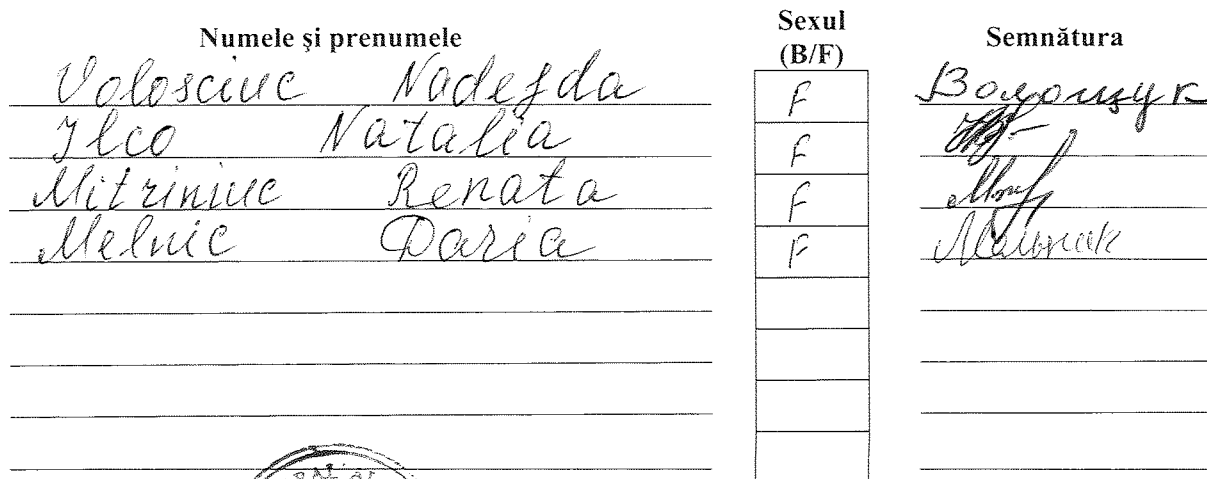 Numele şi prenumele Sexul (B/F) Semnătura
Volosciuc Nadejda F Волощук
Ilco Natalia F
Mitriniuc Renata F
Melnic Daria F Мельник